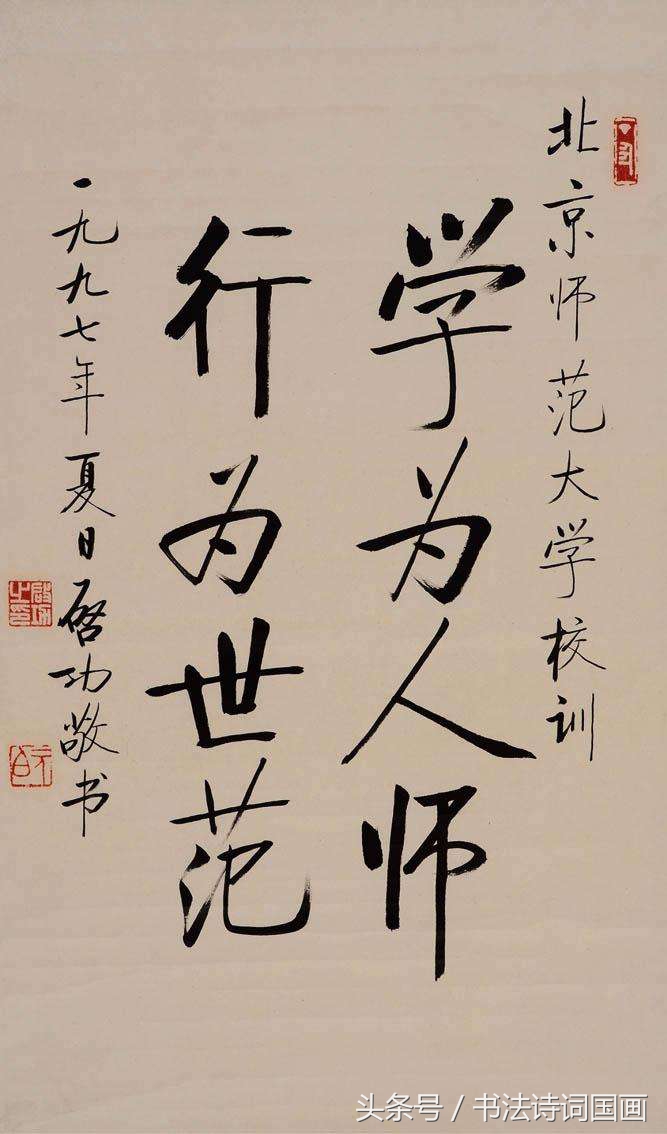 北京师范大学校训
学为人师
行为世范
一九九七年夏日启功敬书
启功之印
元白
头条号 / 书法诗词国画